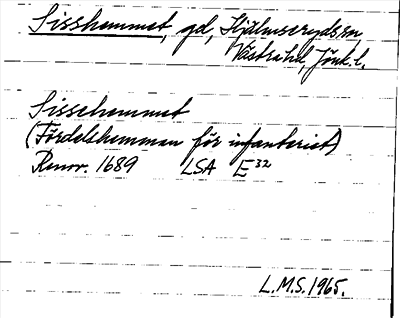 Sisshemmet, gd, Hjälmserydssn,
Västra hd, Jönk. l.
Sissehemmet
(Fördelshemman för infanterist)
Renov. 1689 LSA E32
L.M.S. 1965.